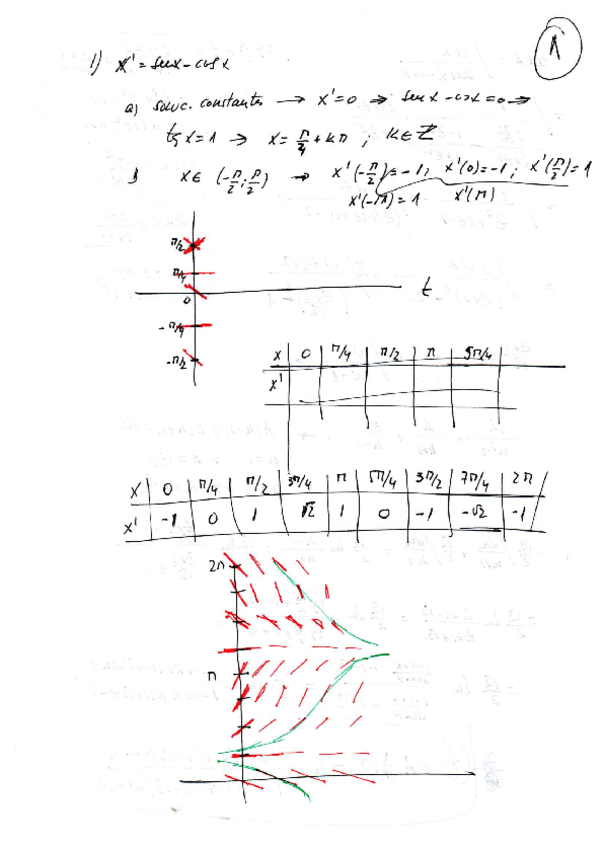 1
1) x' = senx - cosx
a) soluc. constantes → x'=0 ⇒ senx - cosx = 0 ⇒
tgx = 1 → x = π/4 + kπ ; k∈ℤ
b) x ∈ (-π/2; π/2) → x'(-π/2) = -1, x'(0) = -1; x'(π/2) = 1
x'(-π) = 1 x'(π)
π/2
π/4
0 t
-π/4
-π/2
x 0 π/4 π/2 π 5π/4
x'
x 0 π/4 π/2 3π/4 π 5π/4 3π/2 7π/4 2π
x' -1 0 1 √2 1 0 -1 -√2 -1
2π
π